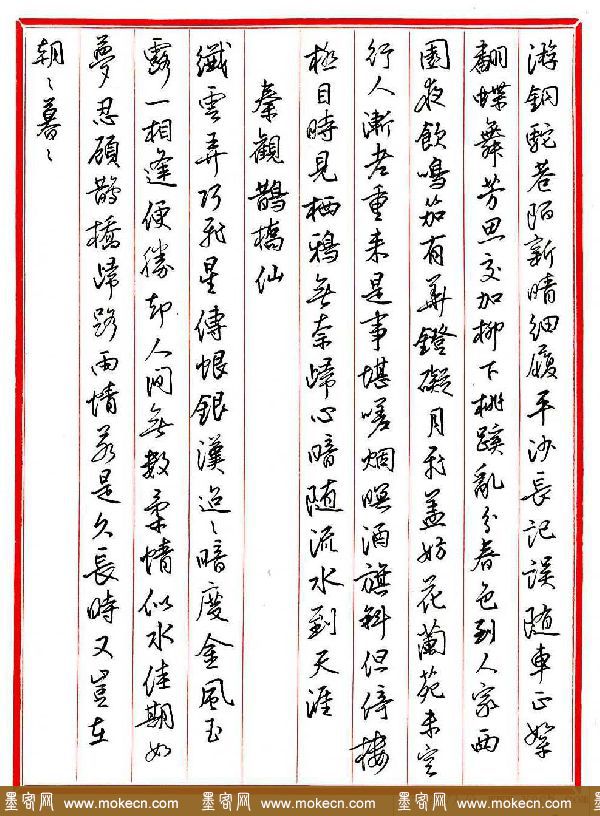 游銅駝巷陌新晴細履平沙長記誤随車正絮
翻蝶舞芳思交加柳下桃蹊亂分春色到人家西
園夜飲鳴笳有華鐙礙月飛蓋妨花蘭苑未空
行人漸老重来是事堪嗟烟暝酒旗斜但倚樓
極目時見栖鴉無奈歸心暗随流水到天涯
秦觀鵲橋仙
纖雲弄巧飛星傳恨銀漢迢〻暗度金風玉
露一相逢便勝却人间無數柔情似水佳期如
夢忍顧鵲橋歸路兩情若是久長時又豈在
朝〻暮〻
墨客网 www.mokecn.com 墨客网 www.mokecn.com 墨客网 www.mokecn.com